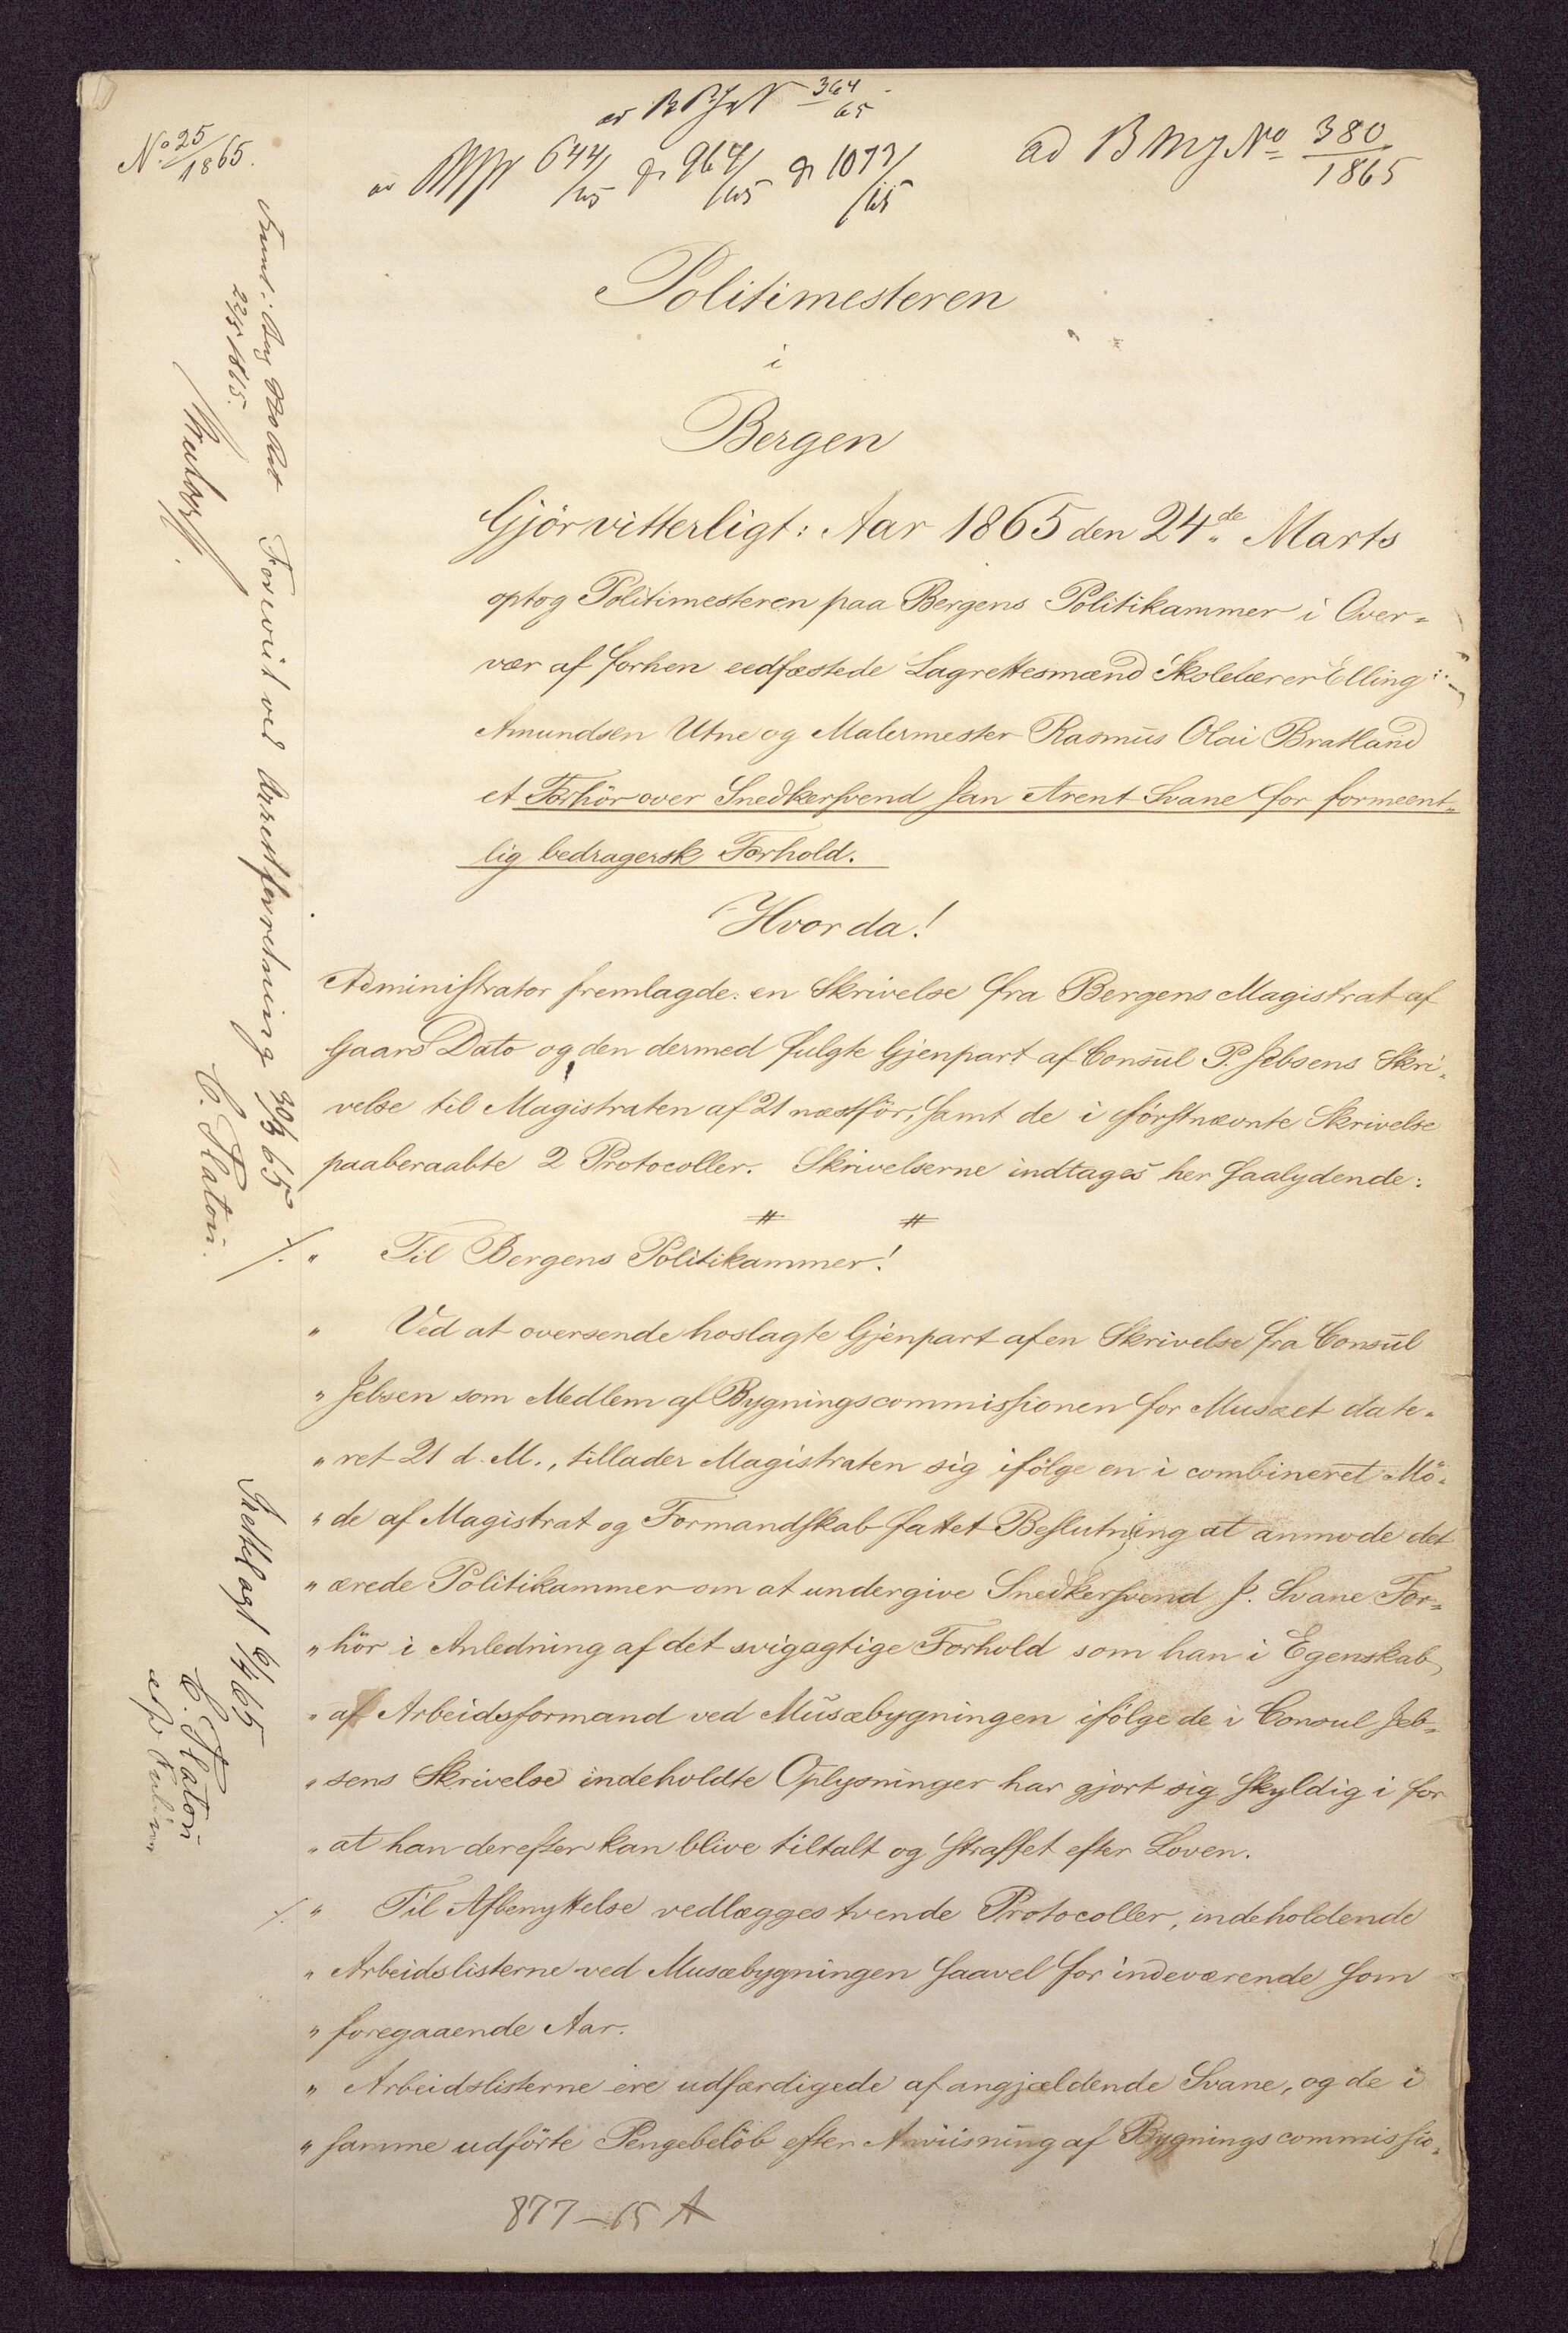 No. 25/1865.
364/65
644/65 964/65 1073/65
ad B M J No 380/1865
Politimesteren
i
Bergen
Gjör vitterligt: Aar 1865 den 24de Marts
optog Politimesteren paa Bergens Politikammer i Over-
vær af forhen eedfæstede Lagrettesmænd Skolelærer Elling
Amundsen Utne og Malermester Rasmus Olai Bratland
et Forhör over Snedkersvend Jan Arent Svane for formeent-
lig bedragersk Forhold.
Hvor da!
Administrator fremlagde: en Skrivelse fra Bergens Magistrat af
Gaars Dato og den dermed fulgte Gjenpart af Consul P. Jebsens Skri-
velse til Magistraten af 21 næstför, samt de i förstnævnte Skrivelse
paaberaabte 2 Protocoller. Skrivelserne indtages her saalydende:
# #
/. " Til Bergens Politikammer!
" Ved at oversende hoslagte Gjenpart af en Skrivelse fra Consul
" Jebsen som Medlem af Bygningscommissionen for Musæet date-
" ret 21 d. M., tillader Magistraten sig ifölge en i combineret Mö-
" de af Magistrat og Formandskab fattet Beslutning at anmode det
" ærede Politikammer om at undergive Snedkersvend J. Svane For-
" hör i Anledning af det svigagtige Forhold som han i Egenskab
" af Arbeidsformand ved Musæbygningen ifölge de i Consul Jeb-
" sens Skrivelse indeholdte Oplysninger har gjort sig skyldig i for
" at han derefter kan blive tiltalt og straffet efter Loven.
/. " Til Afbenyttelse vedlægges tvende Protocoller, indeholdende
" Arbeidslisterne ved Musæbygningen saavel for indeværende som
" foregaaende Aar.
" Arbeidslisterne ere udfærdigede af angjældende Svane, og de i
" samme udförte Pengebelöb efter Anviisning af Bygningscommissio-
877-65 A
22/5 1865.
Foreviist ved Arrestforretning 30/3 65
C. Platou.
Fretlagt 6/4 65
C. Platou